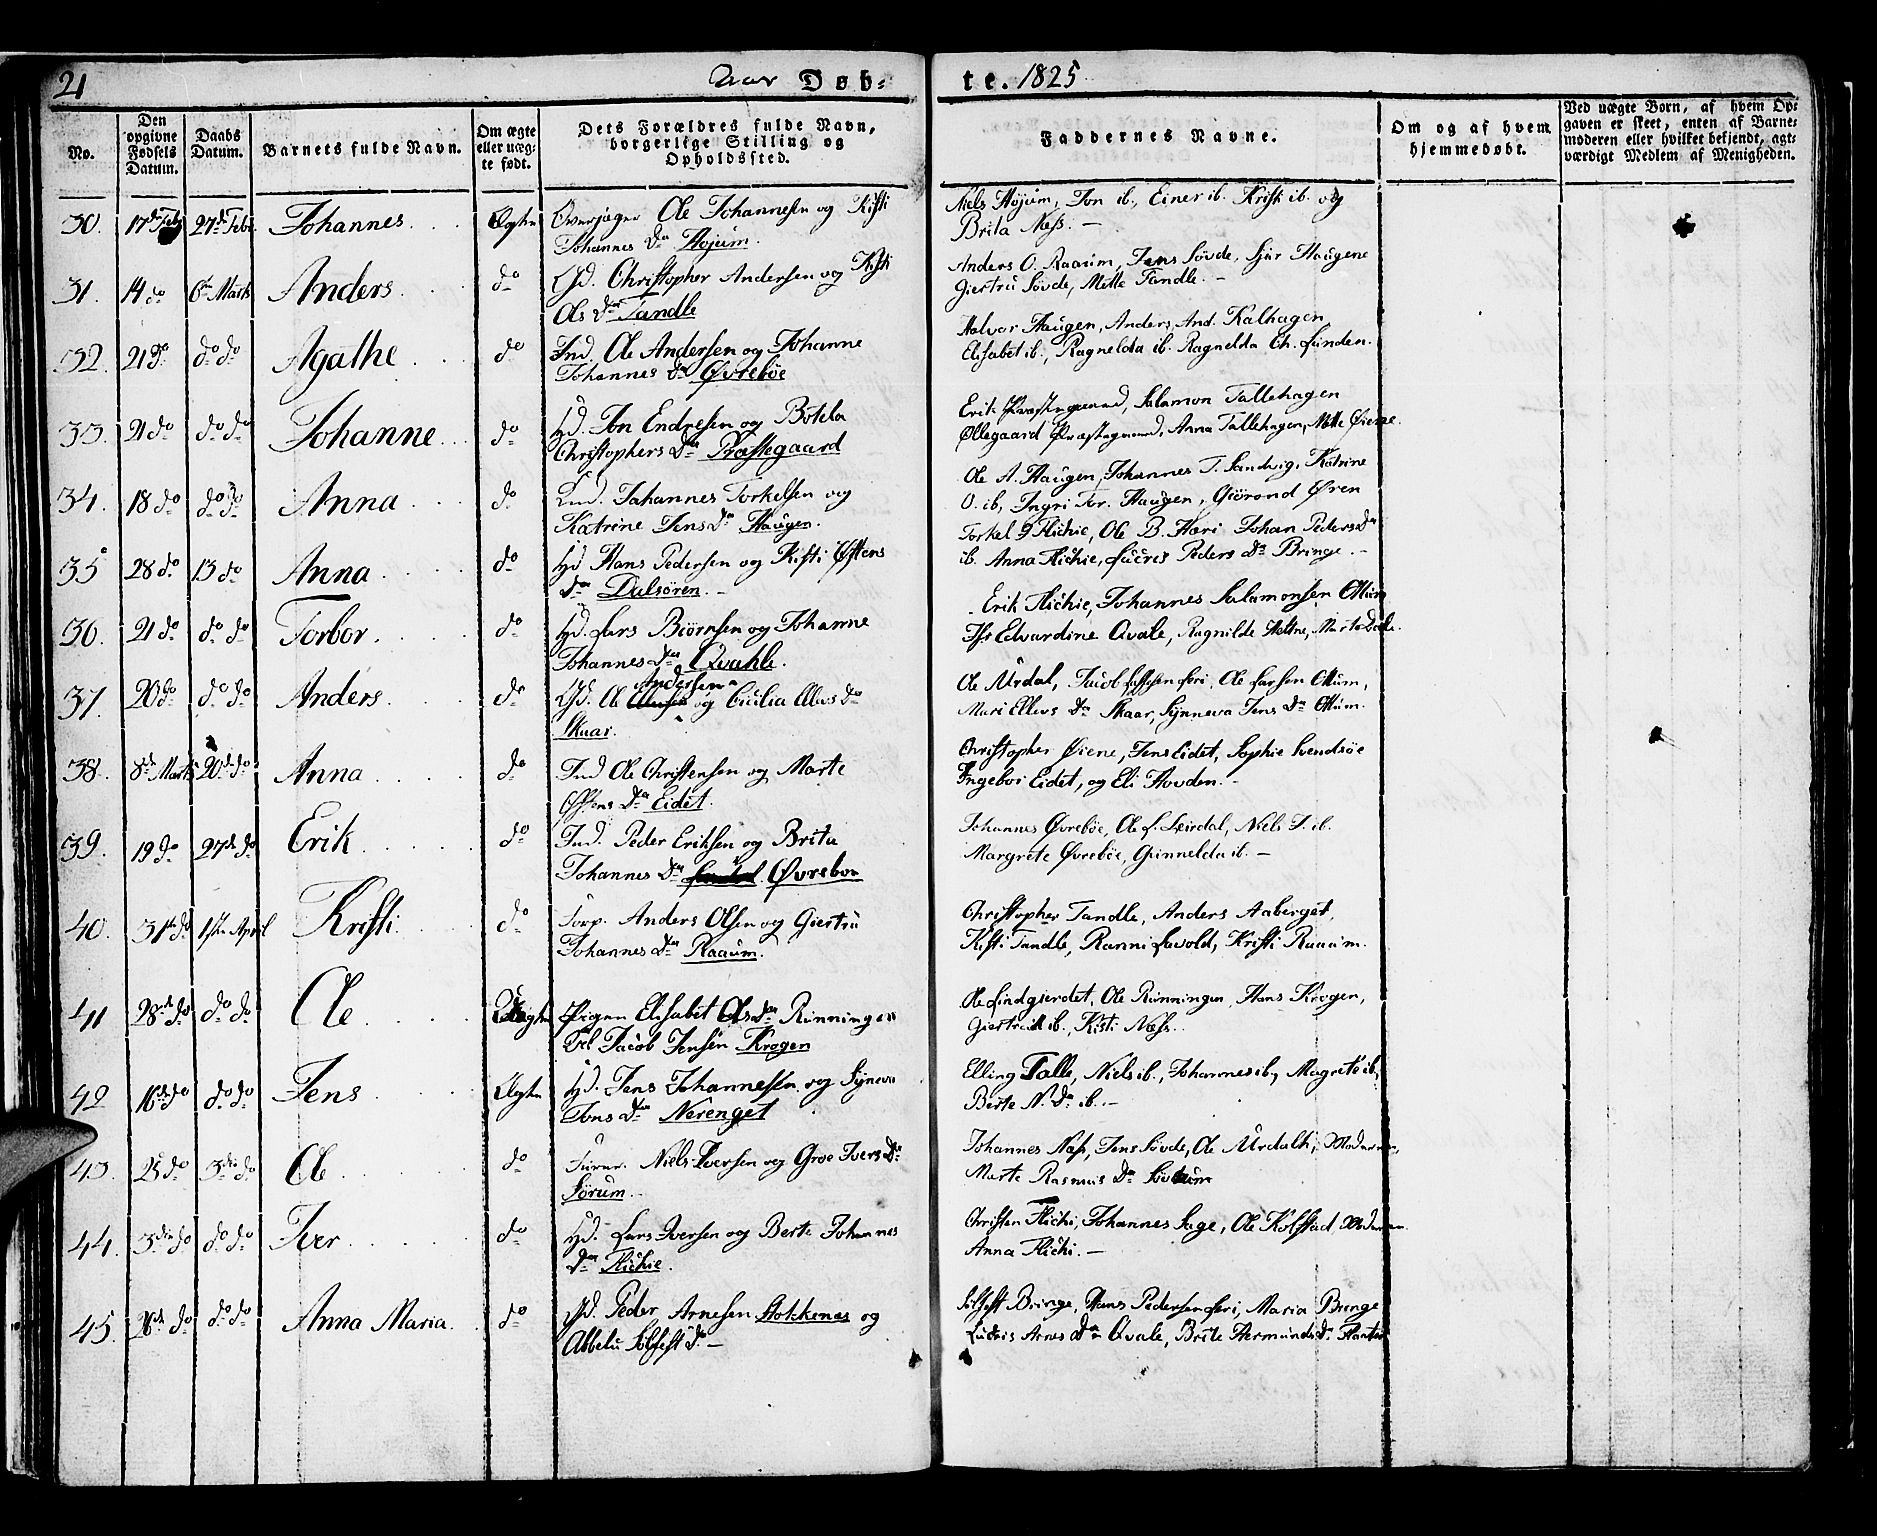 21
Aar Døb-
te. 1825
No.
Den opgivne Fødsels Datum.
Daabs Datum.
Barnets fulde Navn.
Om ægte eller uægte født.
Dets Forældres fulde Navn, borgerlige Stilling og Opholdssted.
Faddernes Navne.
Om og af hvem hjemmedøbt.
Ved uægte Børn, af hvem Opgaven er skeet, enten af Barnemoderen eller hvilket bekjendt, agtværdigt Medlem af Menigheden.
30. 17de Feb 27de Feb. Johannes. Ægte Ole Johannesen og Kisti
Johannes Dr Højum.
Niels Højum, Jon ib., Einer ib. Kristi ib. og
Brita Næss. —
31. 14 do 6te Marts Anders do Gd. Christopher Andersen og Kisti
Ols Dr Tandle
Anders O. Raaum, Jens Søvde, Sjur Haugene
Giertru Søvde, Mette Tandle. —
32. 21 do do do Agathe do Ind. Ole Andersen og Johanne
Johannes Dr Øvrebøe
Halvor Haugen, Anders And. Kalhagen
Elisabet ib., Ragnelda ib. Ragnelda Ch. Linden.
33. 21 do do do Johanne do Hd. Jon Endresen og Botela
Christophers Dr Præstegaard
Erik Præstegaard, Salamon Tallehagen
Øllegaard Præstegaard, Anna Tallehagen, Mette Øiene.
34. 18 do do do Anna do Ind. Johannes Torkelsen og
Katrine Jens Dr Haugen.
Ole A. Haugen, Johannes T. Sandvig, Katrine
O. ib, Ingri Tor. Haugen, Giørond Øren
35. 28 do 13 do Anna do Hd Hans Pedersen og Kisti Østens
Dr Dalsøren. —
Torkel Flichie, Ole B. Høri Johan Peders Dr
ib. Anna Flichie, Lucris Peders Dr Bringe. —
36. 21 do do do Torbor. do Hd. Lars Biørnsen og Johanne
Johannes Dr Qvahle.
Erik Flichie, Johannes Salamonsen Ottum
Jfr Edwardine Qvale, Ragnilde Heltne, Marte
37. 20 do do do Anders do Gd. Ole Andersen og Cicilia Ellevs Dr
Skaar.
Ole Urdal, Jacob Lassesen Løri, Ole Larsen Ottum,
Mari Ellevs Dr Skaar, Synneva Jens Dr Ottum.
38. 8de Marts 20de do Anna do Ind Ole Christensen og Marte
Østens Dr Eidet.
Christopher Øiene, Jens Eidet, Sophie Svendsøe
Ingebor Eidet, og Eli Hovden. —
39. 19 do 27de do Erik do Ind. Peder Eriksen og Brita
Johannes Dr Øvreboe
Johannes Øvrebøe, Ole J. Leirdal, Niels J. ib.
Margrete Øvrebøe, Gunnelda ib. —
40. 31te do 1ste April Kristi. do Anders Olsen og Giertru
Johannes Dr Raaum.
Christopher Tandle, Anders Aaberget,
Kisti Tandle, Ranni Løvold, Kristi Raaum.
41 28de do do do Ole Uægte Pigen Elisabet Ols Dr Rønningen
Jacob Jensen Krogen
Ole Lindgierdet, Ole Rønningen, Hans Krogen,
Giertrud ib., Kisti Næss.
42 16de do do do Jens Ægte Hd. Jens Johannesen og Synneva
Jens Dr Nerenget
Elling Talle, Niels ib., Johannes ib, Magrete ib,
Berte N. Dr ib. —
43. 25 do 3die do Ole do Niels Iversen og Groe Ivers Dr
Sørum. —
Johannes Næss, Jens Søvde, Ole Urdahl,
Marte Rasmus Dr
44. 3die do do do Iver do Hd. Lars Iversen og Berte Johannes
Dr Flichie.
Christen Flichi, Johannes Sage, Ole Kolstad,
Anna Flichi. —
45. 26de do do do Anna Maria. do Gd. Peder Arnesen Stokkenes og
Abbelu Solfest Dr —
Solfest Bringe, Hans Pedersen Løri, Maria Bringe
Lucris Arnes Dr Qvale, Brite Hermunds Dr